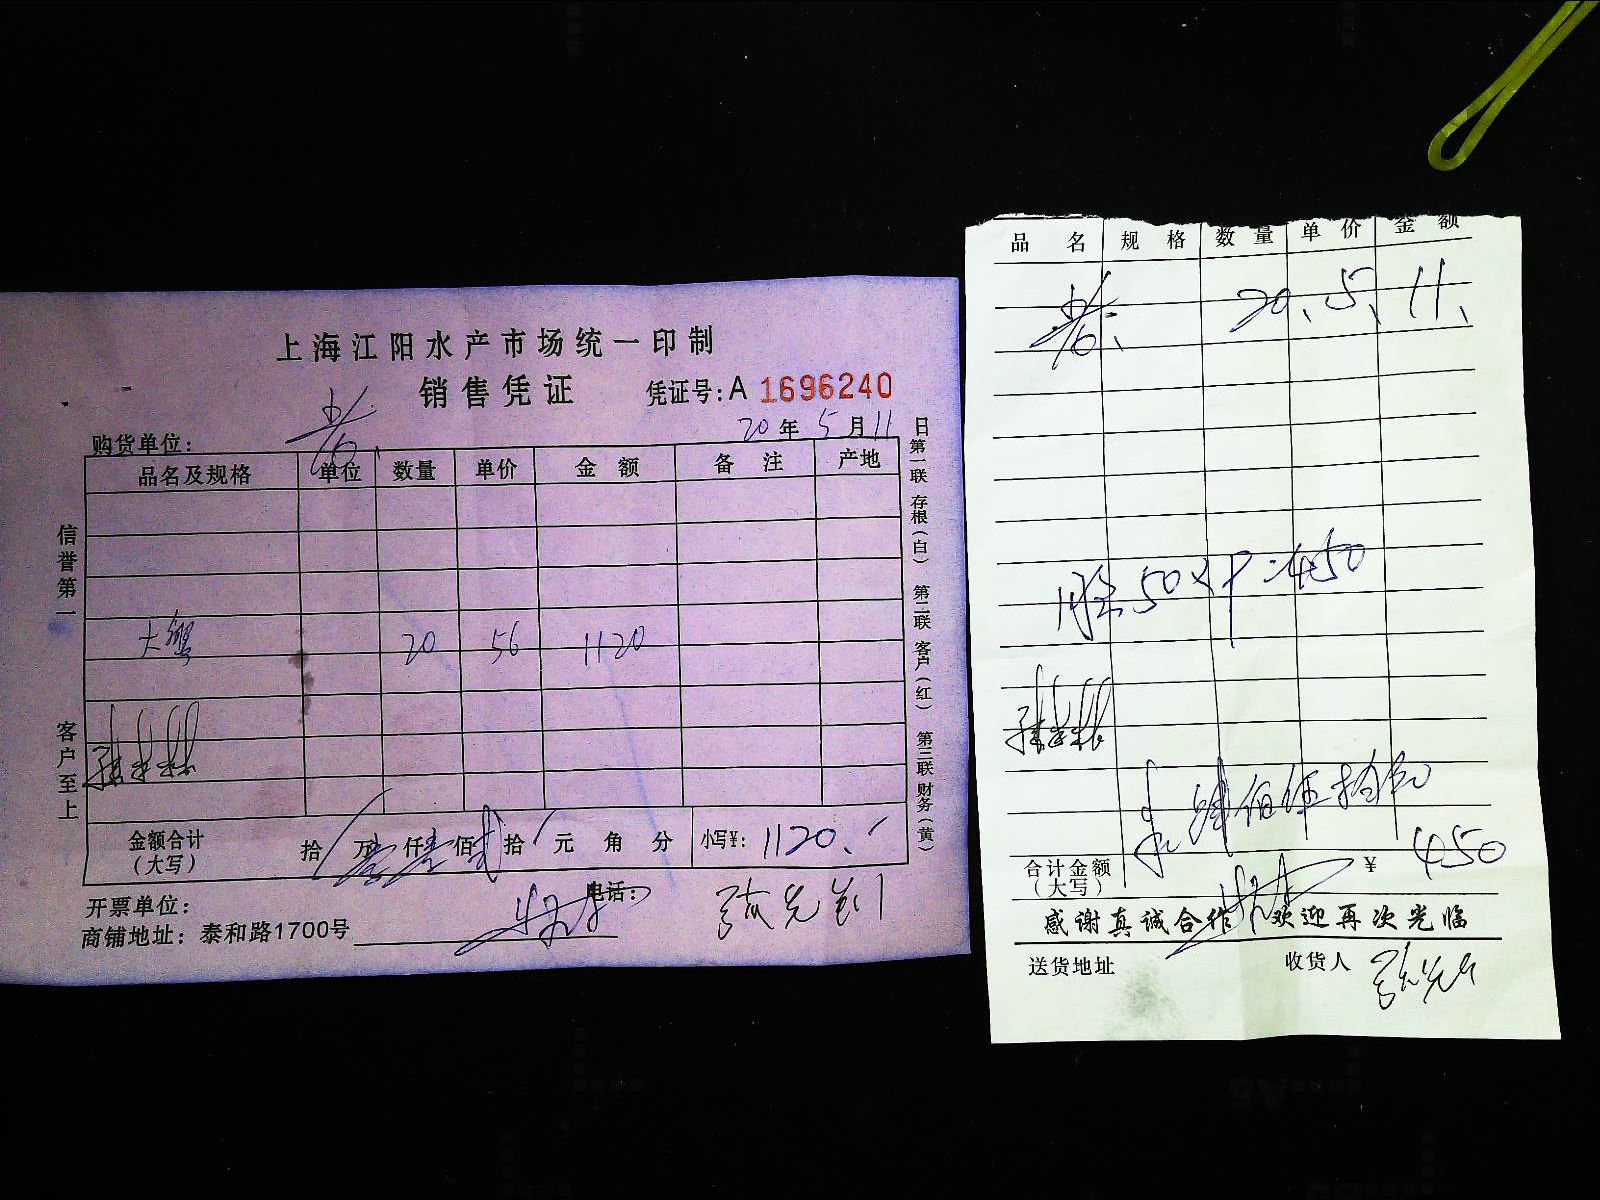 上海江阳水产市场统一印制
销售凭证
凭证号:A 1696240
购货单位:
20年 5月 11日
品名及规格 单位 数量 单价 金额 备注 产地
20 56 1120
金额合计
(大写)
拾 万壹仟壹佰贰拾 元 角 分 小写¥: 1120.
开票单位:
电话:
商铺地址: 泰和路1700号
信誉第一
客户至上
第一联 存根(白) 第二联 客户(红) 第三联 财务(黄)
品名 规格 数量 单价 金额
20、5、11、
50×9=450
肆佰伍拾
合计金额
(大写)
¥ 450
感谢真诚合作 欢迎再次光临
送货地址 收货人